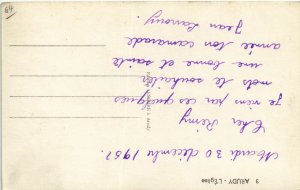 64
Mardi 30 décembre 1951.
Cher Rémy
je viens par ces quelques
mots te souhaiter
une bonne et sainte
année ton camarade
Jean Lamouy.
9 ARUDY - L'Église